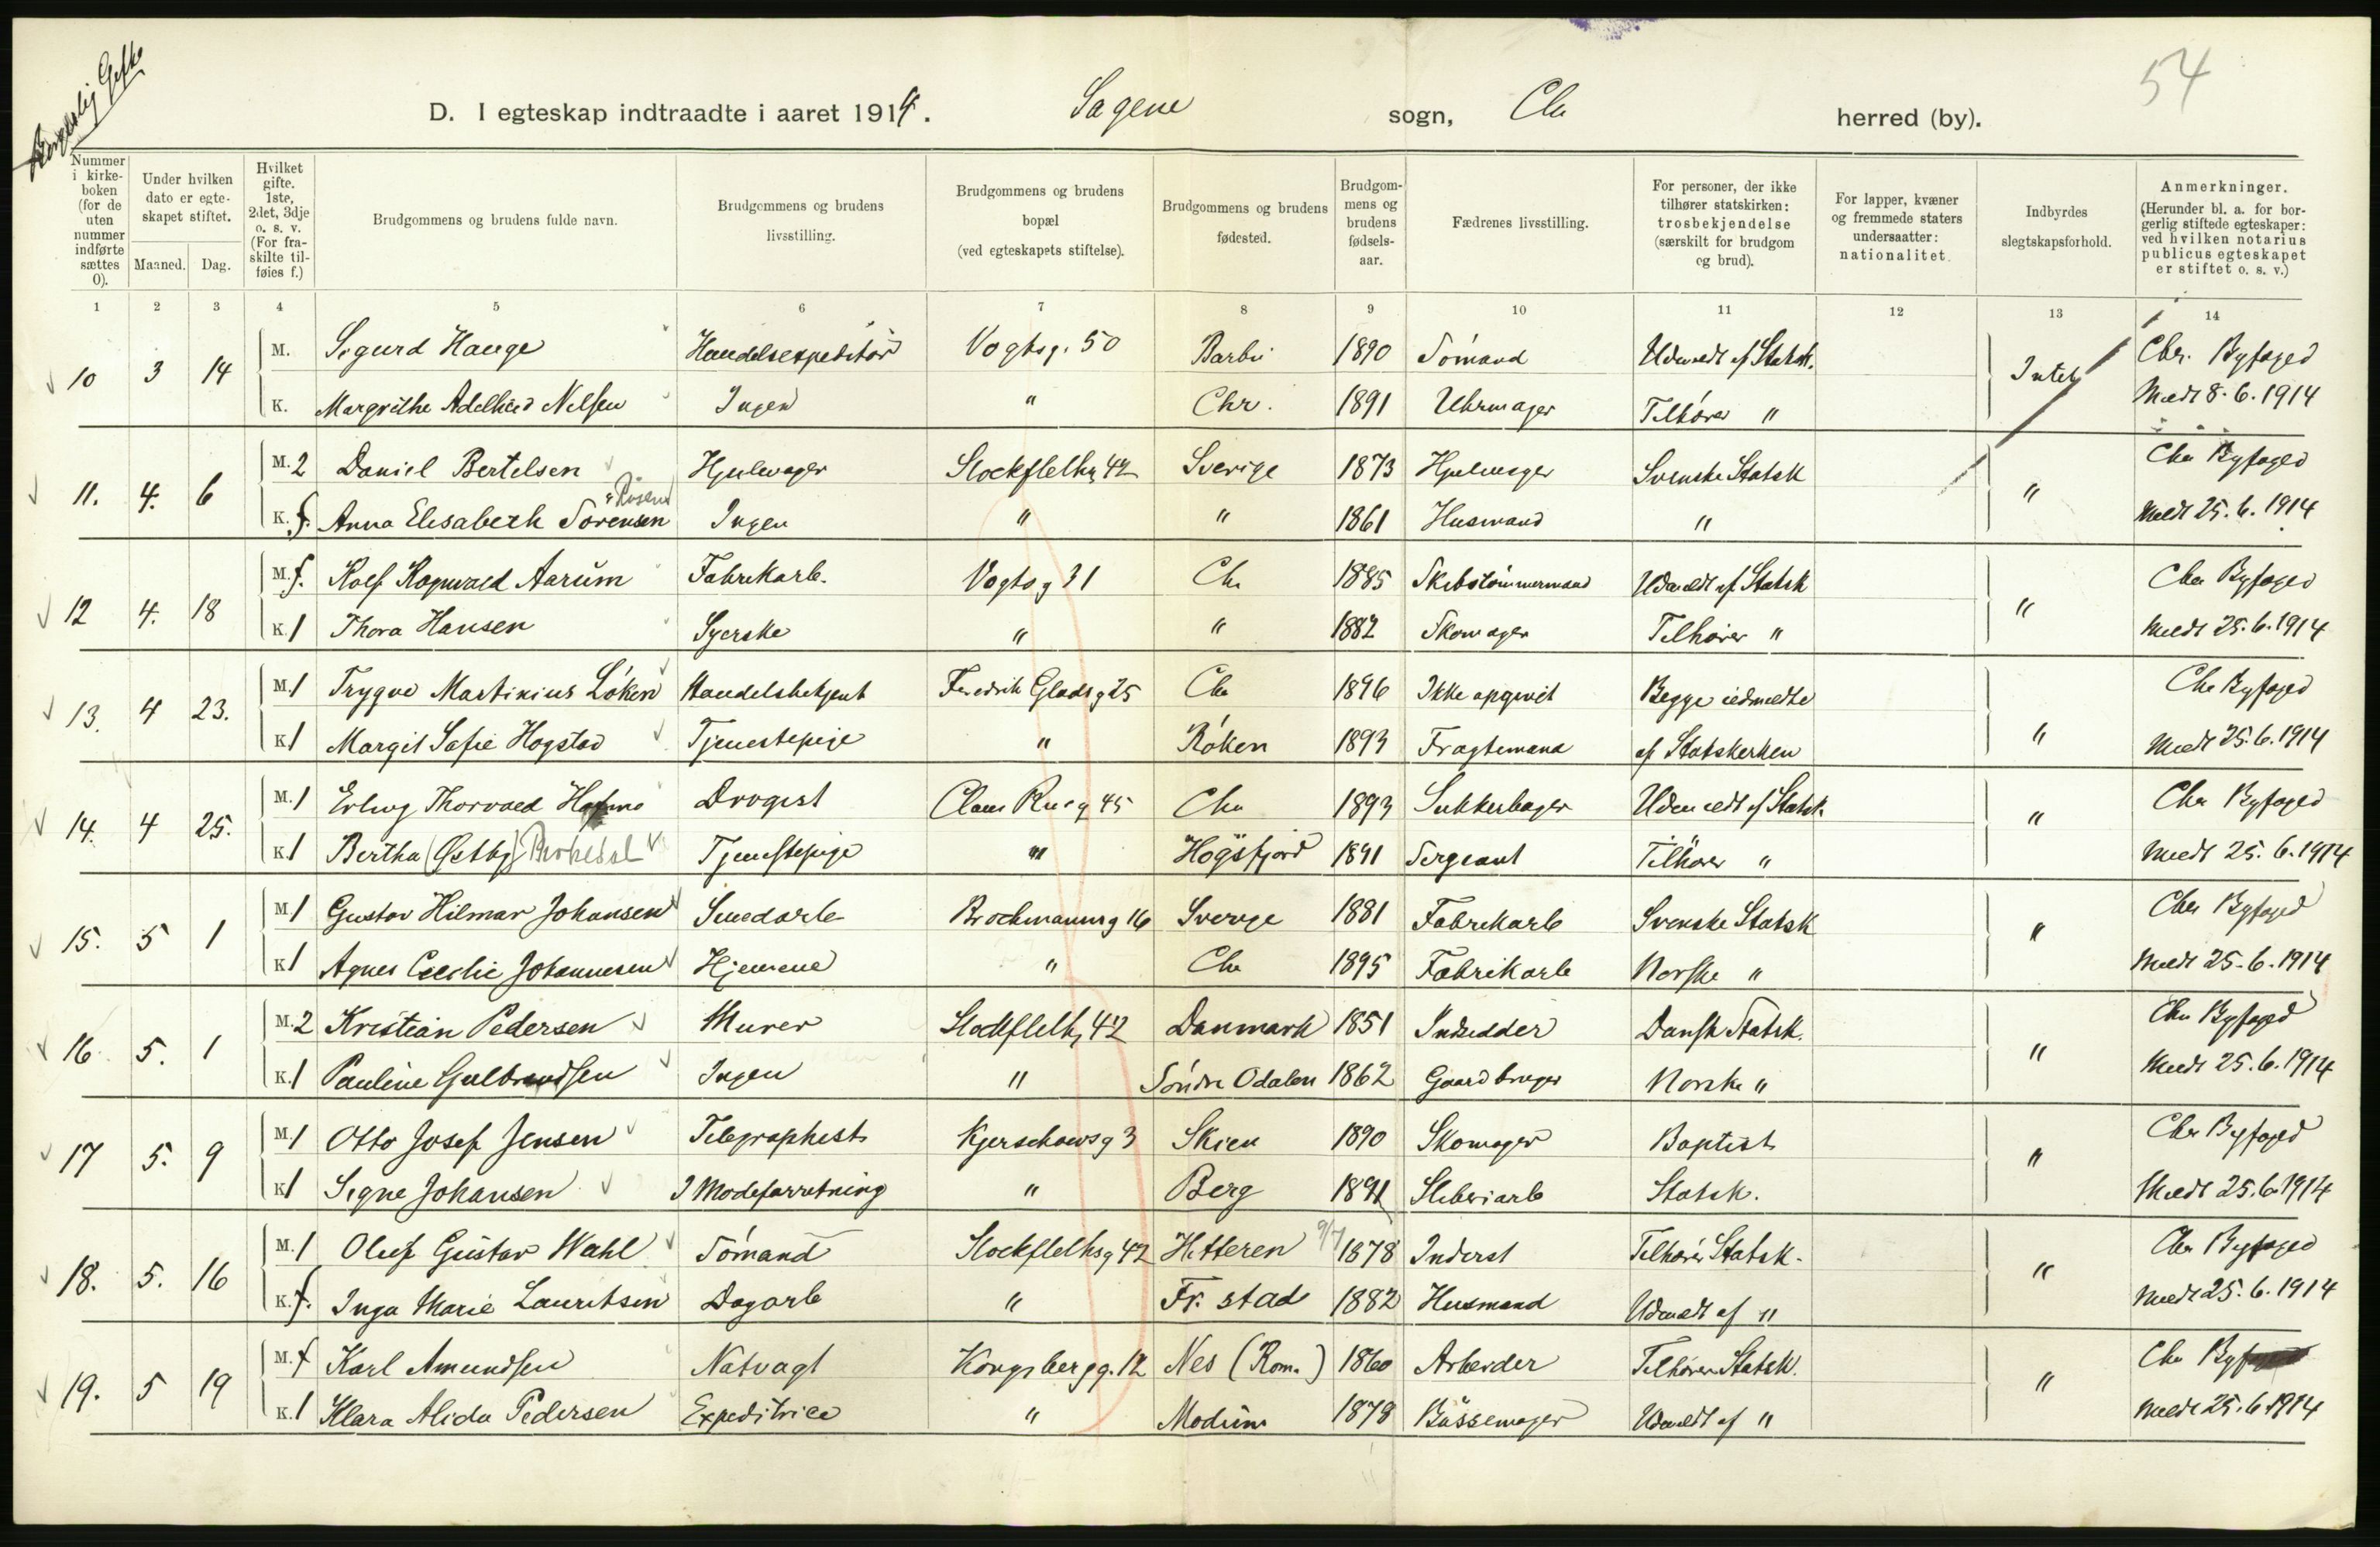 Borgerlig Gifte
54
D. I egteskap indtraadte i aaret 1914. Sagene sogn, Chr herred (by).
Nummer i kirkeboken (for de uten nummer indførte sættes 0).
Under hvilken dato er egteskapet stiftet.
Maaned. Dag.
Hvilket gifte. 1ste, 2det, 3dje o. s. v. (For fraskilte tilføies f.)
Brudgommens og brudens fulde navn.
Brudgommens og brudens livsstilling.
Brudgommens og brudens bopæl (ved egteskapets stiftelse).
Brudgommens og brudens fødested.
Brudgommens og brudens fødselsaar.
Fædrenes livsstilling.
For personer, der ikke tilhører statskirken: trosbekjendelse (særskilt for brudgom og brud).
For lapper, kvæner og fremmede staters undersaatter: nationalitet.
Indbyrdes slegtskapsforhold.
Anmerkninger. (Herunder bl. a. for borgerlig stiftede egteskaper: ved hvilken notarius publicus egteskapet er stiftet o. s. v.)
1 2 3 4 5 6 7 8 9 10 11 12 13 14
10 3 14 M. Sigurd Hauge Handelsexpeditør Vogtsg. 50 Barbu 1890 Sømand Udmeldt af Statsk. Intet Chr. Byfoged
K. Margrethe Adelheid Nilsen Ingen " Chr. 1891 Uhrmager Tilhører " Meldt 8.6.1914
11. 4. 6 M. 2 Daniel Bertelsen Hjulmager Stockflethg 42 Sverige 1873 Hjulmager Svenske Statsk " Chr Byfoged
K. f. Anna Elisabeth Sørensen Ingen " " 1861 Husmand " Meldt 25.6.1914
12 4. 18 M. f. Rolf Ragnvald Aarum Fabrikarb. Vogtsg 31 Chr 1885 Skibstømmermand Udmeldt af Statsk " Chr Byfoged
K. 1 Thora Hansen Syerske " " 1882 Skomager Tilhører " Meldt 25.6.1914
13. 4 23. M. 1 Trygve Martinius Løken Handelsbetjent Fredrik Gladsg 25 Chr 1896 Ikke opgivet Begge udmeldte " Chr Byfoged
K 1 Margit Sofie Hogstad Tjenestepige " Røken 1893 Fragtemand af Statskirken Meldt 25.6.1914
14. 4 25. M. 1 Erling Thorvald Drogist Claus Riisg 45 Chr 1893 Sukkerbager Udmeldt af Statsk. " Chr Byfoged
K 1 Bertha (Østby) Tjenestepige " Høgsfjord 1891 Sergeant Tilhører " Meldt 25.6.1914
15. 5 1 M 1 Gustav Hilmar Johansen Smedarb Brochmannsg 16 Sverige 1881 Fabrikarb Svenske Statsk " Chr Byfoged
K 1 Agnes Cecilie Johannesen Hjemme " Chr 1895 Fabrikarb Norske " Meldt 25.6.1914
16 5. 1 M. 2 Kristian Pedersen Murer Stockflethg 42 Danmark 1851 Indsidder Dansk Statsk. " Chr Byfoged
K. 1 Pauline Gulbrandsen Ingen " Søndre Odalen 1862 Gaardbruger Norske " Meldt 25.6.1914
17 5. 9 M. 1 Otto Josef Jensen Telegraphist Kjerschowsg 3 Skien 1890 Skomager Baptist " Chr Byfoged
K 1 Signe Johansen I Modeforretning " Berg 1891 Sliberiarb Statsk. Meldt 25.6.1914
18. 5. 16 M. 1 Oluf Gustav Wahl Sømand Stockflethsg 42 Hitteren 9/7 1878 Inderst Tilhører Statsk. " Chr Byfoged
K. f. Inga Marie Lauritsen Dagarb " Fr. stad 1882 Husmand Udmeldt af " Meldt 25.6.1914
19. 5 19 M. f Karl Amundsen Natvagt Kongsbergg. 12 Nes (Rom.) 1860 Arbeider Tilhører Statsk. " Chr Byfoged
K. 1 Klara Alida Pedersen Expeditrice " Modum 1878 Bøssemager Udmeldt af " Meldt 25.6.1914